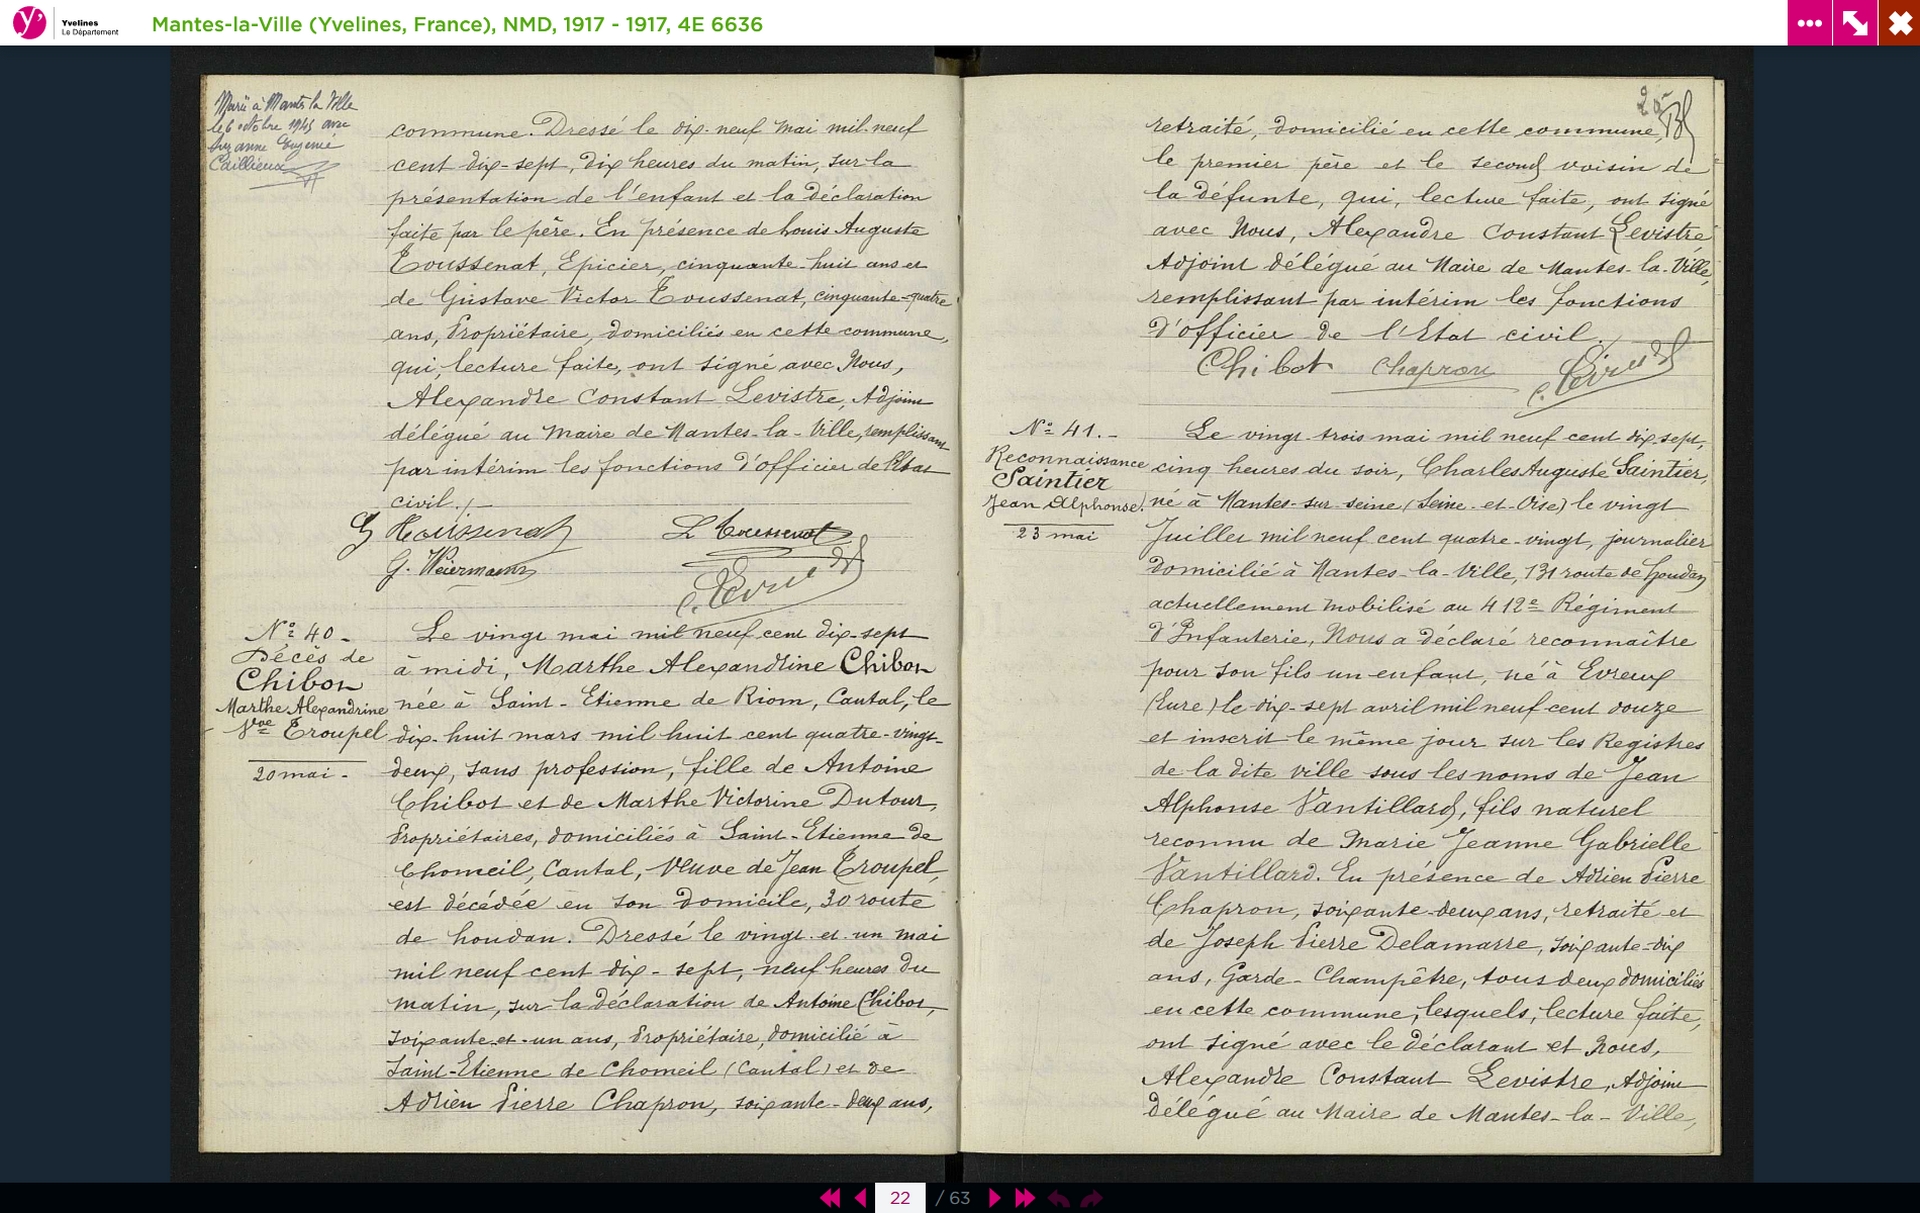 Yvelines
Le Département
Mantes-la-Ville (Yvelines, France), NMD, 1917 - 1917, 4E 6636
Marié à Mantes la Ville
le 6 octobre 1945 avec
Suzanne Eugénie
Caillieux
commune. Dressé le dix-neuf Mai mil-neuf
cent dix-sept, dix heures du matin, sur la
présentation de l'enfant et la déclaration
faite par le père. En présence de Louis Auguste
Toussenat, Epicier, cinquante-huit ans et
de Gustave Victor Toussenat, cinquante-quatre
ans, Propriétaire, domiciliés en cette commune,
qui, lecture faite, ont signé avec Nous,
Alexandre Constant Levistre, Adjoint
délégué au Maire de Mantes-la-Ville, remplissant
par intérim les fonctions d'officier de l'Etat
civil./.
G Toussenat L Toussenat
G. Weiermann
N° 40.
Décès de
Chibot
Marthe Alexandrine
Vve Troupel
20 mai.
Le vingt mai mil neuf cent dix-sept
à midi, Marthe Alexandrine Chibot
née à Saint-Etienne de Riom, Cantal, le
dix-huit mars mil huit cent quatre-vingt-
deux, sans profession, fille de Antoine
Chibot et de Marthe Victorine Dutour,
Propriétaires, domiciliés à Saint-Etienne de
Chomeil, Cantal, Veuve de Jean Troupel,
est décédée en son domicile, 30 route
de houdan. Dressé le vingt-et-un mai
mil neuf cent dix-sept, neuf heures du
matin, sur la déclaration de Antoine Chibot,
soixante-et-un ans, Propriétaire, domicilié à
Saint-Etienne de Chomeil (Cantal) et de
Adrien Pierre Chapron, soixante-deux ans,
25
retraité, domicilié en cette commune,
le premier père et le second voisin de
la défunte, qui, lecture faite, ont signé
avec Nous, Alexandre Constant Levistre
Adjoint délégué au Maire de Mantes-la-Ville,
remplissant par intérim les fonctions
d'officier de l'Etat civil./.
Chibot Chapron
N° 41.-
Reconnaissance
Saintier
Jean Alphonse.
23 mai
Le vingt-trois mai mil neuf cent dix-sept,
cinq heures du soir, Charles Auguste Saintier,
né à Mantes-sur-seine (Seine-et-Oise) le vingt
Juillet mil neuf cent quatre-vingt, journalier
domicilié à Mantes-la-Ville, 131 route de houdan
actuellement mobilisé au 412e Régiment
d'Infanterie, Nous a déclaré reconnaître
pour son fils un enfant, né à Evreux
(Eure) le dix-sept avril mil neuf cent douze
et inscrit le même jour sur les Registres
de la dite ville sous les noms de Jean
Alphonse Vantillard, fils naturel
reconnu de Marie Jeanne Gabrielle
Vantillard. En présence de Adrien Pierre
Chapron, soixante-deux ans, retraité et
de Joseph Pierre Delamarre, soixante-dix
ans, Garde-Champêtre, tous deux domiciliés
en cette commune, lesquels, lecture faite,
ont signé avec le déclarant et Nous,
Alexandre Constant Levistre, Adjoint
délégué au Maire de Mantes-la-Ville,
22 / 63